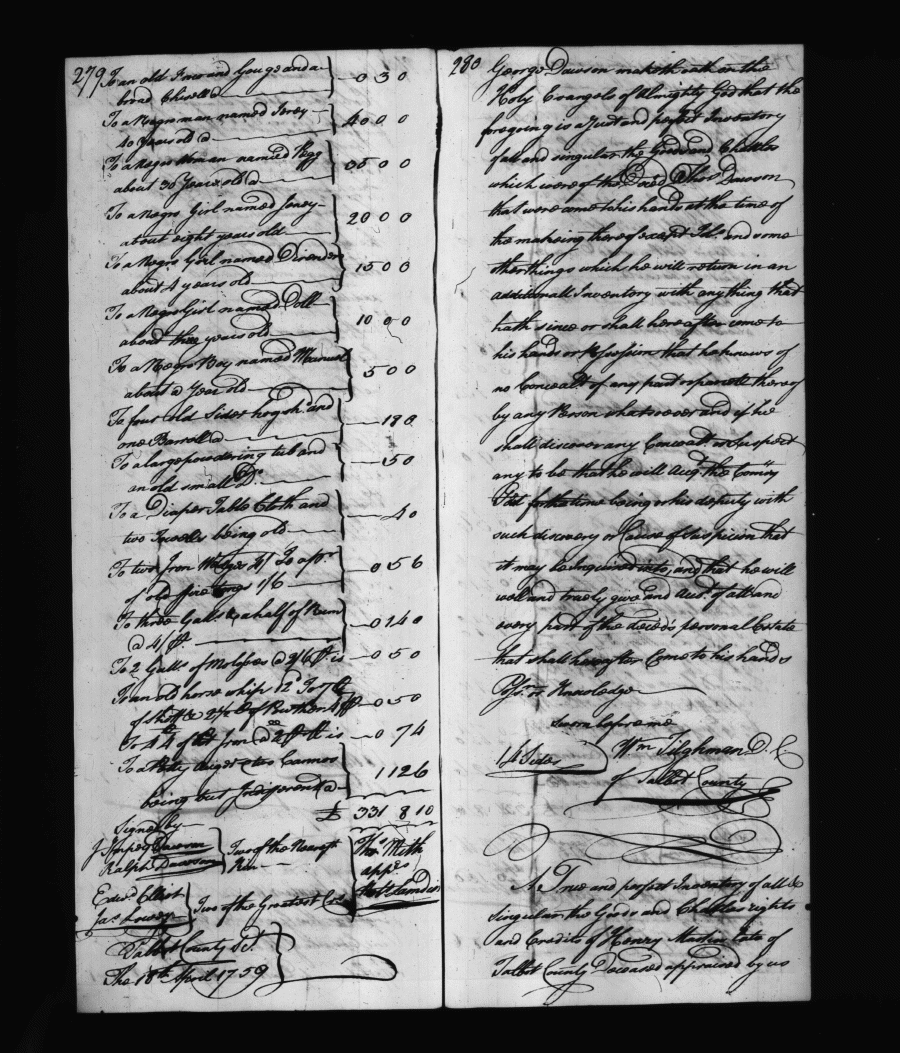 279
To an old Frow and Gouge and a
broad Chisell @ 0 3 0
To a Negro man named Jorey
40 Years old @ 40 0 0
To a Negro Woman named Pegg
about 30 Years old @ 35 0 0
To a Negro Girl named Janey
about eight years old 20 0 0
To a Negro Girl named
about 4 years old 15 0 0
To a Negro Girl named Doll
about three years old 10 0 0
To a Negro Boy named Manuel
about a Year old 5 0 0
To four old Sider hogsh.ds and
one Barrell @ 18 0
To a large powdering tub and
an old small Do. 5 0
To a Diaper Table Cloth and
two Towells being old 4 0
To two Iron Wedges 4/ To a pr.
of old fire tongs 1/6 0 5 6
To three Galls. & a half of Rum
@ 4/ 0 14 0
To 2 Galls. of Molasses @ 2/6 is 0 5 0
To an old horse whip 12d To
of & 2½ of Pewther 0 5 0
To 44 of Iron @ 2 is 0 7 4
To a Petty Auger & two Cannos
being but Indifferent @ 1 12 6
£ 331 8 10
Signed by
Impey Dawson
Ralph Dawson
Two of the Nearest
Kin
Edwd. Elliot
Jas. Lowe
Two of the Greatest Crs.
Thos.
appr.
Talbot County Sct.
The 18th April 1759
280
George Dawson maketh oath on the
Holy Evangels of Almighty God that the
foregoing is a Just and perfect Inventory
of all and singular the Goods and Chattles
which were of the Deced Thos. Dawson
that were come to his hands at the time of
the makeing thereof except and some
other things which he will return in an
additionall Inventory with anything that
hath since or shall hereafter come to
his hands or Possession that he knows of
no Concealt. of any part or parcell thereof
by any Person whatsoever and if he
shall discover any Concealt. or suspect
any to be that he will Acqt. the Comry
for the time being or his deputy with
such discovery or Cause of Suspicion that
it may be enquired into, and that he will
well and truely give and Acct. of all and
every part of the deceds personal Estate
that shall hereafter Come to his hands
Poss. or Knowledge
Sworn before me
Wm Tilghman D. C.
of Talbot County
14 Sides
A True and perfect Inventory of all &
Singular the Goods and Chattles rights
and Credits of Henry Martin late of
Talbot County Deceased appraised by us